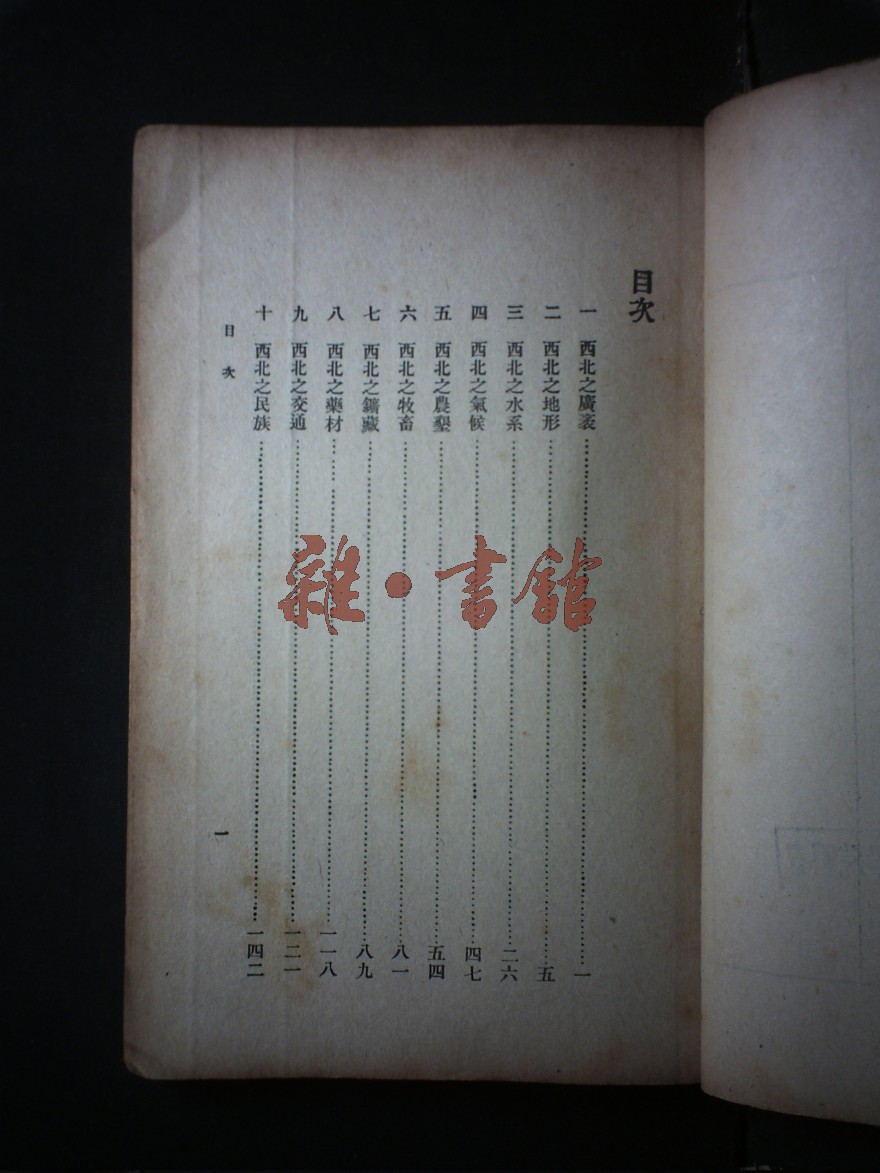 目次
一 西北之廣袤……一
二 西北之地形……五
三 西北之水系……二六
四 西北之氣候……四七
五 西北之農墾……五四
六 西北之牧畜……八一
七 西北之鑛藏……八九
八 西北之藥材……一一八
九 西北之交通……一二一
十 西北之民族……一四二
目次 一
雜·書館